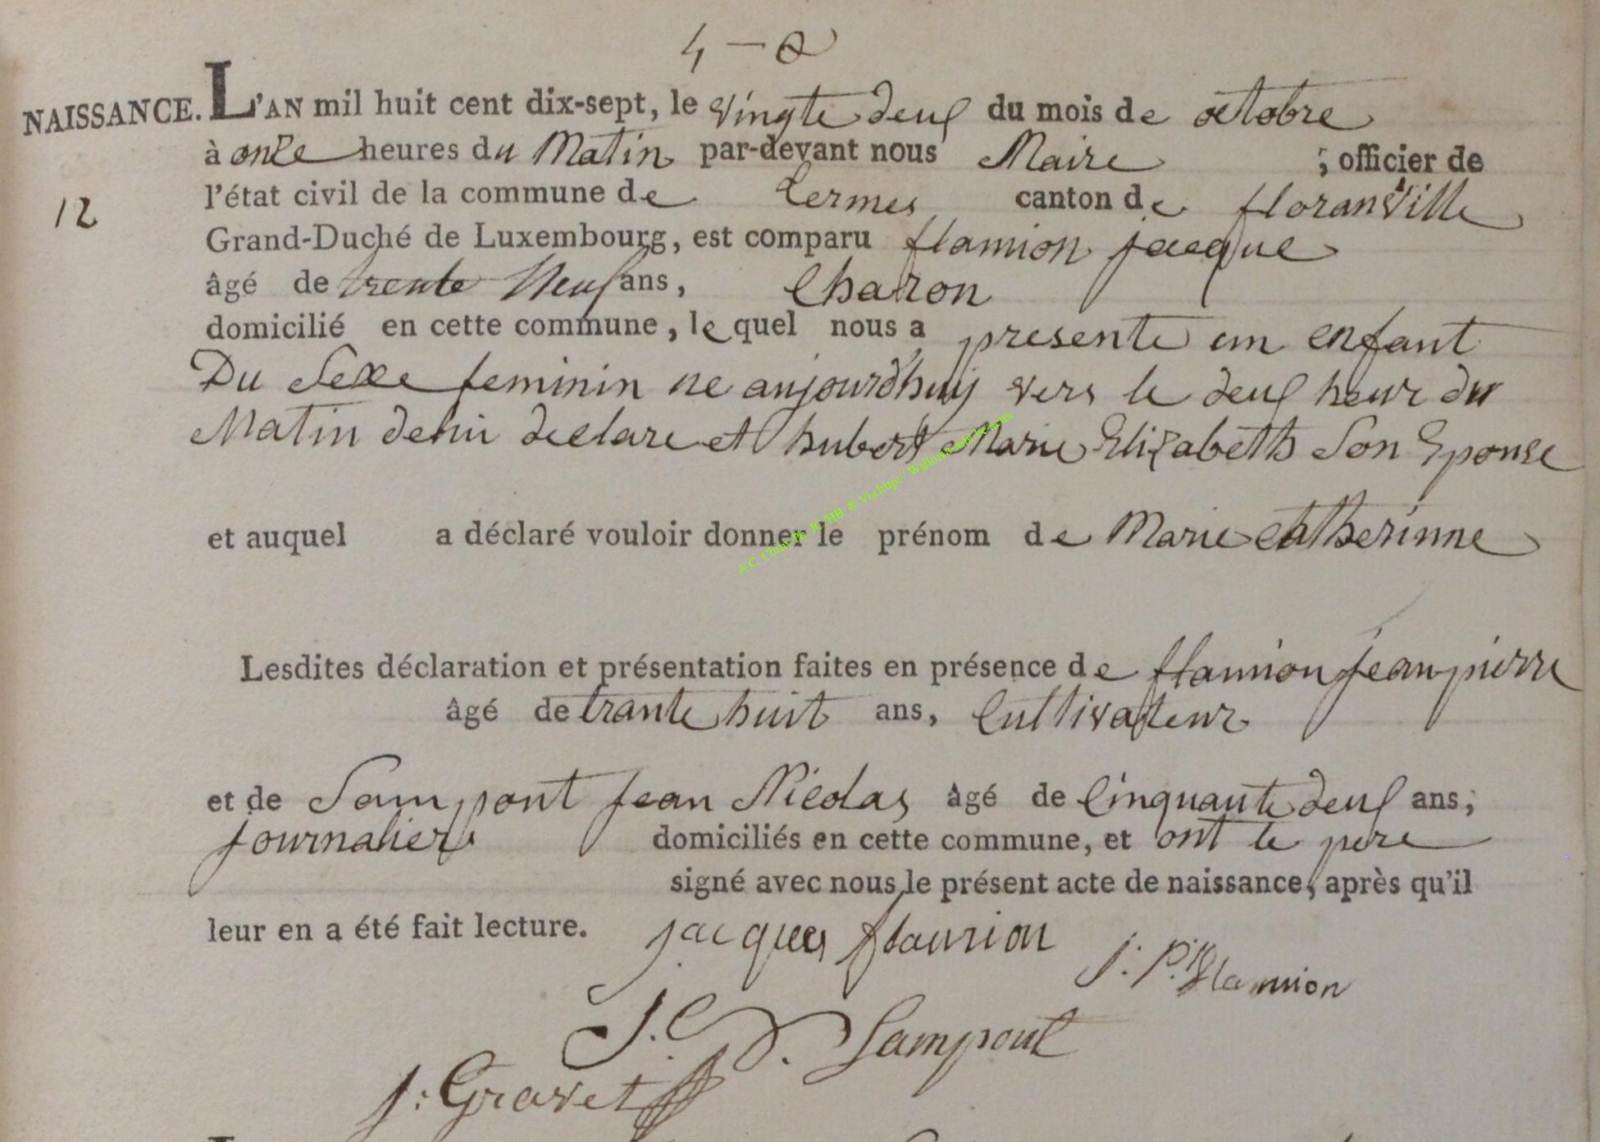 4 - 8
NAISSANCE. L'AN mil huit cent dix-sept, le vingte deux du mois de octobre
à onze heures du Matin par-devant nous Maire ; officier de
l'état civil de la commune de termes canton de floranville
12
Grand-Duché de Luxembourg, est comparu flamion jacque
âgé de trente Neuf ans, Charon
domicilié en cette commune, le quel nous a presente un enfant
Du Sexe feminin ne aujourd'huy vers le deux heur du
Matin de lui declare et hubert Marie Elizabeth Son Epouse
et auquel a déclaré vouloir donner le prénom de Marie catherinne
Lesdites déclaration et présentation faites en présence de flamion jean pierre
âgé de trante huit ans, Cultivateur
et de Sampont jean Nicolas âgé de Cinquante deux ans,
journalier domiciliés en cette commune, et ont le pere
signé avec nous le présent acte de naissance, après qu'il
leur en a été fait lecture. jacques flamion
j. p. flamion
J. Sampont
j: Gravet